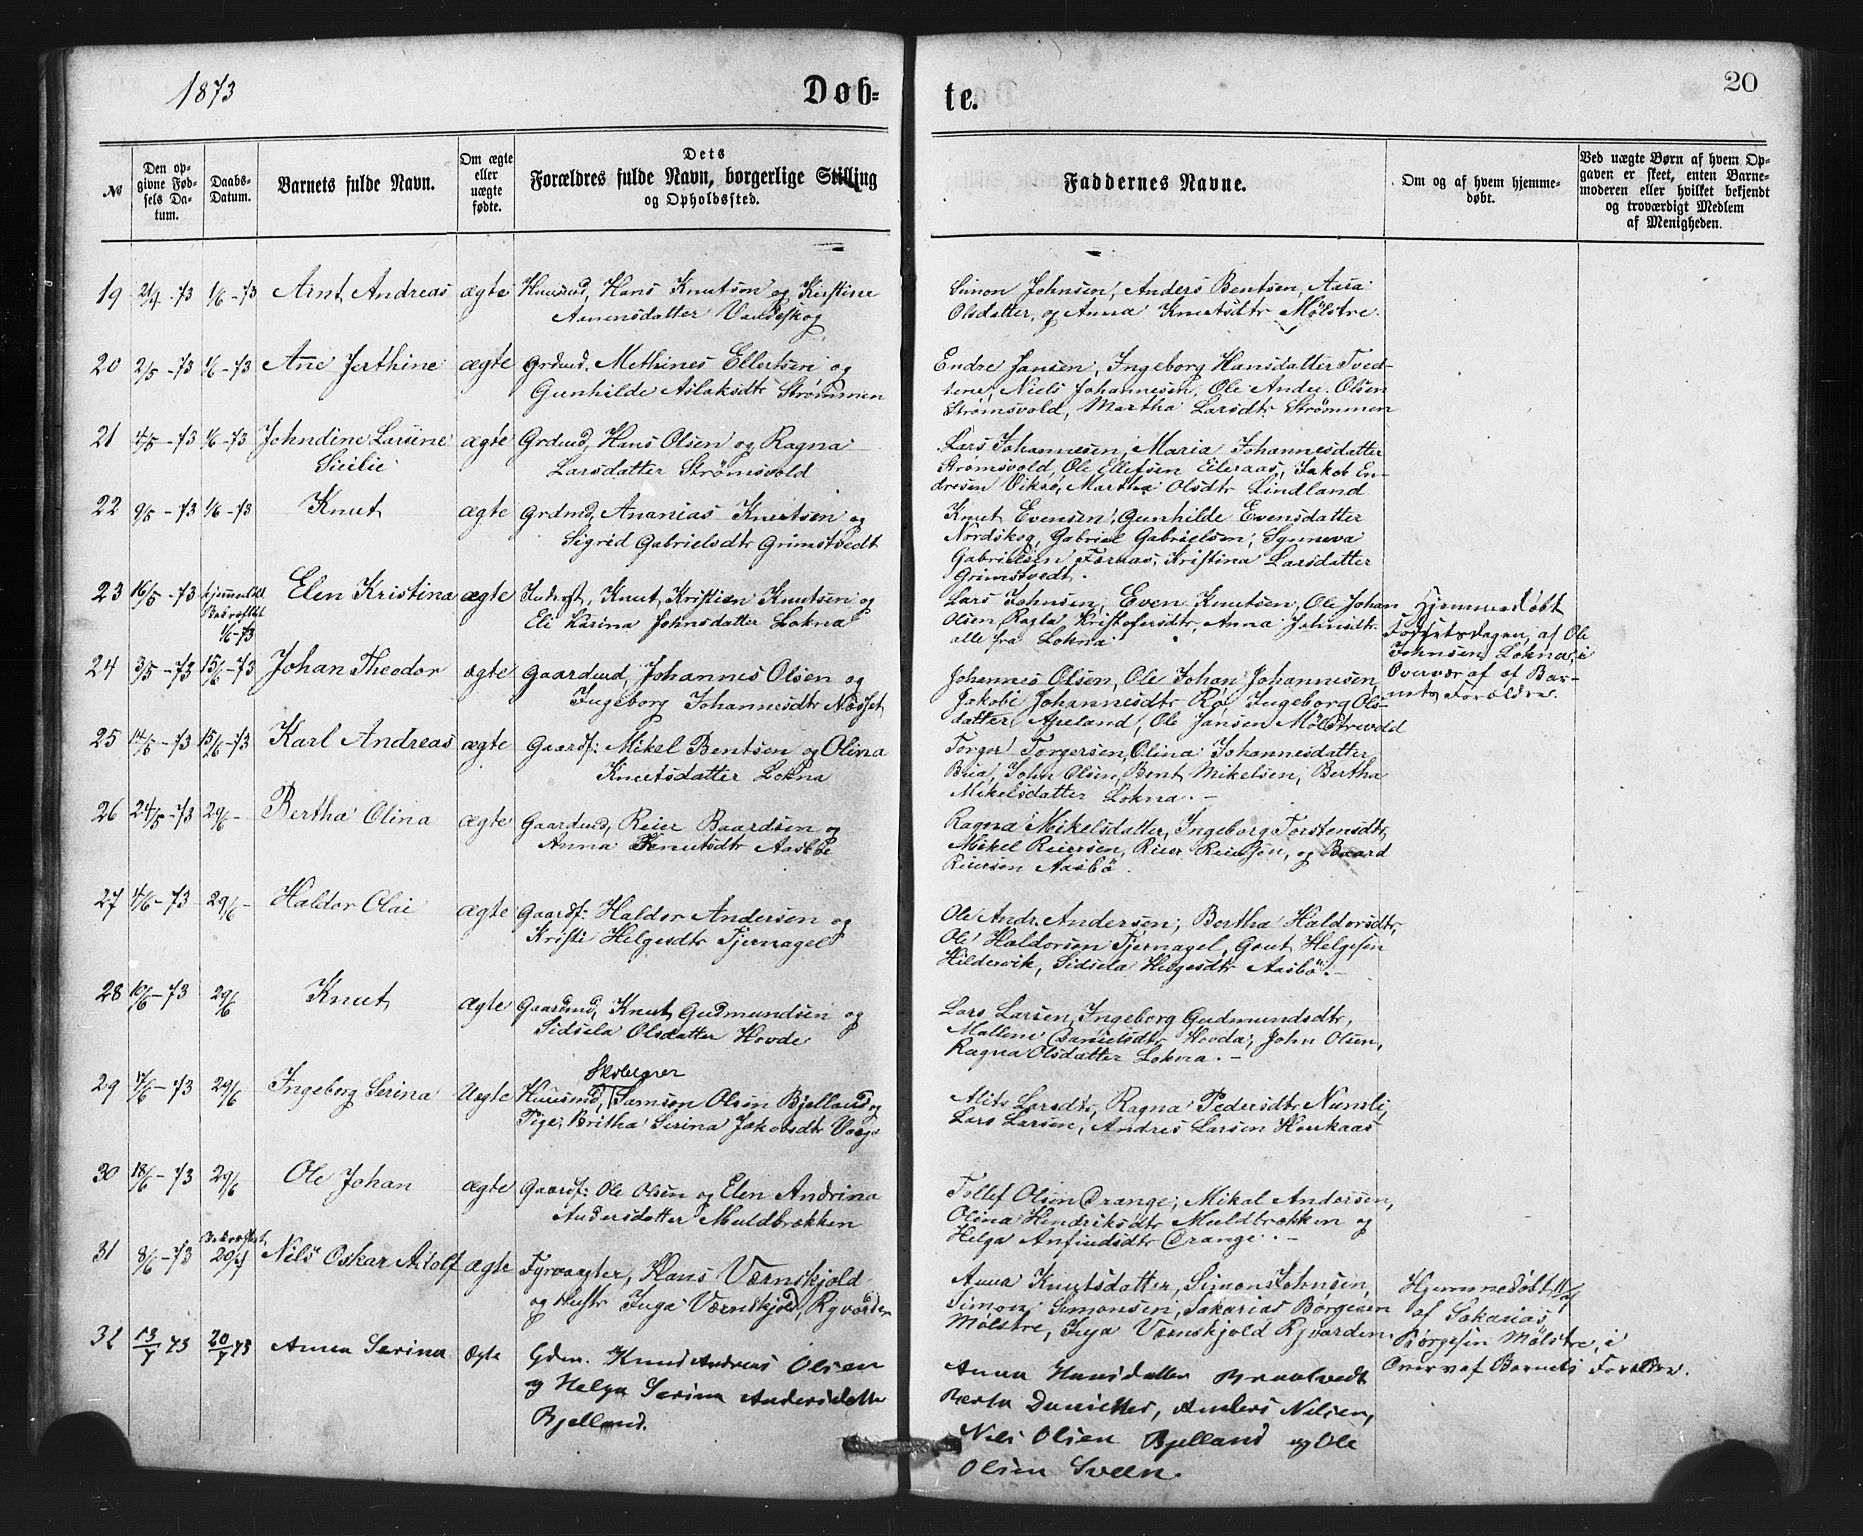 1873
Døb-
te.
20
№
Den op-
givne Fød-
sels Da-
tum.
Daabs-
Datum.
Barnets fulde Navn.
Om ægte
eller
uægte
fødte.
Dets
Forældres fulde Navn, borgerlige Stilling
og Opholdssted.
Faddernes Navne.
Om og af hvem hjemme-
døbt.
Ved uægte Børn af hvem Op-
gaven er skeet, enten Barne-
moderen eller hvilket bekjendt
og troværdigt Medlem
af Menigheden.
19 21/4 - 73 1/6 - 73 Arnt Andreas ægte Huusmd, Hans Knutsen og Kirstine
Vandeskog
Simon Johnsen, Anders Bentsen, Aasa
Olsdatter, og Anna Knutsdtr Mølstre.
20 2/5 - 73 1/6 - 73 Ane Jerthine ægte Grdmd. Methines Ellertsen og
Gunhilde Aslaksdtr Strømmen
Endre Jansen, Ingeborg Hansdatter Tved-
tene, Niels Johannesen, Ole Andr. Olsen
Strømsvold, Martha Larsdtr Strømmen
21 4/5 - 73 1/6 - 73 Johndine Larsine ægte Grdmd, Hans Olsen og Ragna
Sicilie
Larsdatter Strømsvold
Lars Johannesen, Maria Johannesdatter
Strømsvold, Ole Ellefsen Eileraas, Jakob En-
dresen Viksø, Martha Olsdtr Lindland
22 9/5 - 73 1/6 - 73 Knut ægte Grdmd, Ananias Knutsen og
Sigrid Gabrielsdtr Grimstvedt
Knut Evensen, Gunhilde Evensdatter
Nordskog, Gabriel Gabrielsen, Synneva
Gabrielsen Førnaas, Kristina Larsdatter
Grimstvedt.
23 16/5 - 73 hjemmedøbt
Bekræftet
1/6 - 73
Elen Kristina ægte Knut Kristian Knutsen og
Eli Karina Johnsdatter Lokna
Lars Johnsen, Even Knutsen, Ole Johan
Olsen Ragla Kristofersdtr, Anna Johnsdtr
alle fra Lokna
Hjemmedøbt
Fødselsdagen, af Ole
Johnsen Lokna, i
Overvær af af Bar-
nets Forældre.
24 3/5 - 73 15/6 - 73 Johan Theodor ægte Gaardmd, Johannes Olsen og
Ingeborg Johannesdtr Næsset
Johannes Olsen, Ole Johan Johannesen,
Jakobe Johannesdtr Rø, Ingeborg Ols-
datter, Apeland, Ole Jansen Mølstrevold
25 14/5 - 73 15/6 - 73 Karl Andreas ægte Gaardf: Mikel Bentsen og Olina
Knutsdatter Lokna
Torger Torgersen, Olina Johannesdatter
Bua, John Olsen, Bent Mikelsen, Bertha
Mikelsdatter Lokna. -
26 24/5 - 73 29/6 - Bertha Olina ægte Gaardmd, Reier Baardsen og
Anna Knutsdtr Aasbø
Ragna Mikelsdatter, Ingeborg Torstensdtr,
Mikel Reiersen, Reier Reiersen, og Baard
Reiersen Aasbø.
27 4/6 - 73 29/6 - Haldor Olai ægte Gaardf: Haldor Andersen og
Kristi Helgesdtr Tjernagel
Ole Andr. Andersen, Bertha Haldorsdtr,
Ole Haldorsen Tjernagel, Gaut Helgesen
Hildervik, Sidsela Helgesdtr Aasbø. -
28 10/6 - 73 29/6 Knut ægte Gaardmd, Knut Gudmundsen og
Sidsela Olsdatter Hovde
Lars Larsen, Ingeborg Gudmundsdtr,
Malleni Danielsdtr Hovda, John Olsen,
Ragna Olsdatter Lokna. -
29 17/6 - 73 29/6 Ingeborg Serina Uægte Skolelærer
Huusmd, Samson Olsen Bjelland og
Pige, Britha Serina Jakobsdtr
Larsdtr, Ragna Pedersdtr Numsli,
Lars Larsen, Andres Larsen Houkaas
30 18/6 - 73 29/6 Ole Johan ægte Gaardf: Ole Olsen og Elen Andrina
Andersdatter Muldbrækken
Tollef Olsen Orange, Mikal Andersen,
Olina Hendriksdtr Muldbrækken og
Helga Anfindsdtr Orange. -
31 8/6 - 73 Bekræftet
20/7
Nils Oskar Adolf ægte Fyrvogter, Hans Værnskjold
og Hustr Inga Værnskjold, Ryvarden
Anna Knutsdatter, Simon Johnsen,
Simon Simonsen, Sakarias Børgesen
Mølstre, Inga Værnskjold Ryvarden.
Hjemmedøbt
af Sakarias
Børgesen Mølstre, i
Overv af Barnets Forældre.
32 13/7 73 20/7 73 Anna Serina Ægte Gdm. Knud Andreas Olsen
og Helga Serina Andersdatter
Bjelland.
Anna Hansdatter Braatvedt
Berta Danielsd, Anders Nilsen,
Nils Olsen Bjelland og Ole
Olsen Sveen.